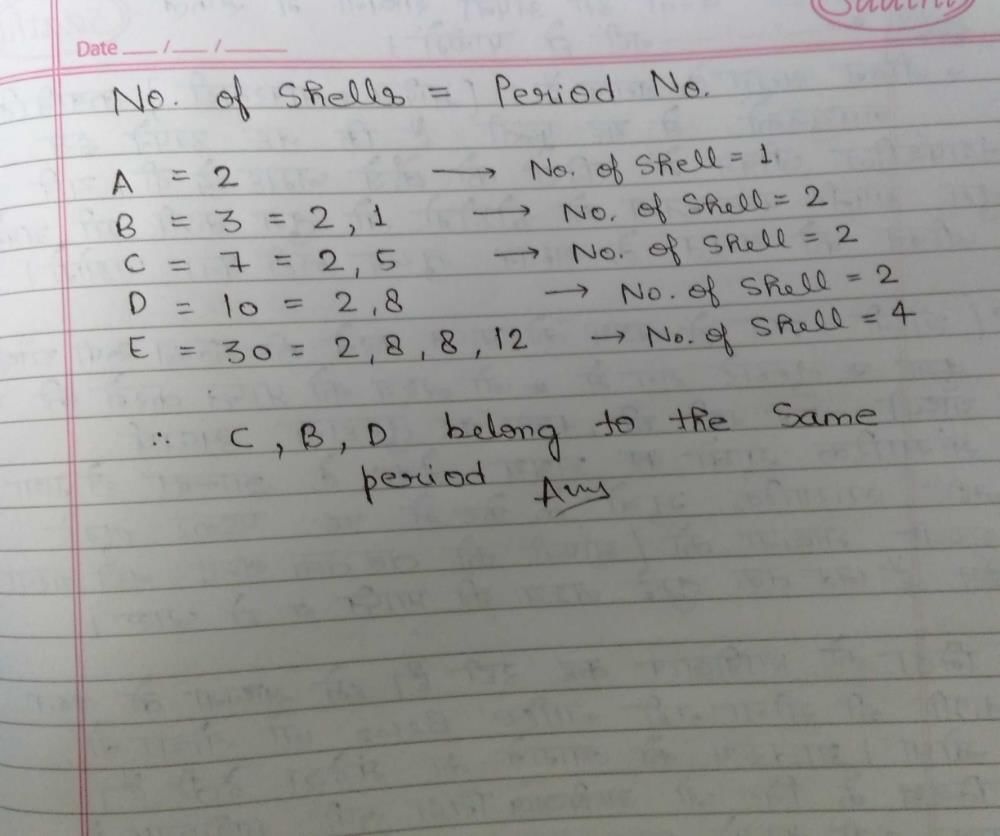 Date __/__/____
No. of Shells = Period No.
A = 2 → No. of Shell = 1
B = 3 = 2, 1 → No. of Shell = 2
C = 7 = 2, 5 → No. of Shell = 2
D = 10 = 2, 8 → No. of Shell = 2
E = 30 = 2, 8, 8, 12 → No. of Shell = 4
∴ C, B, D belong to the Same
period Ans